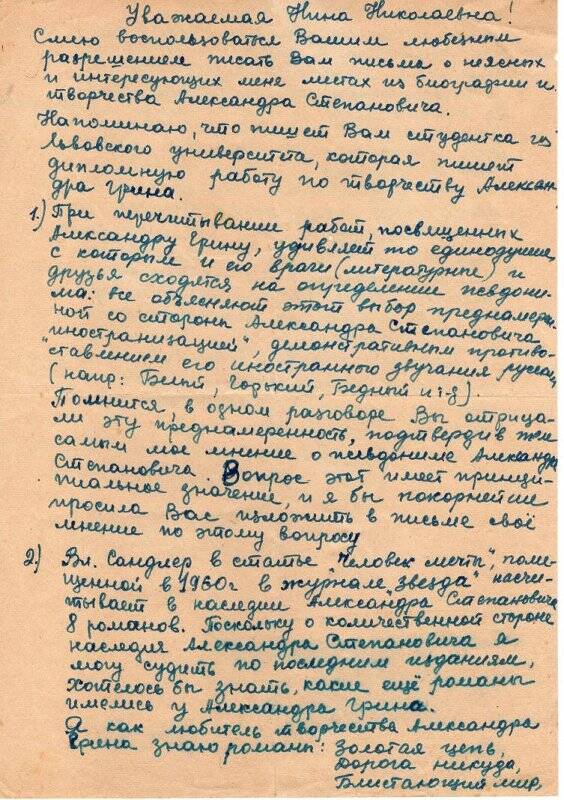 Уважаемая Нина Николаевна!
Смею воспользоваться Вашим любезным
разрешением писать Вам письма о неясных
и интересующих мене местах из биографии и
творчества Александра Степановича.
Напоминаю, что пишет Вам студентка из
Львовского университета, которая пишет
дипломную работу по творчеству Алексан
дра Грина.
1.) При перечитывании работ, посвященных
Александру Грину, удивляет то единодушие,
с которым и его враги (литературные) и
друзья сходятся на определении псевдони-
ма: все объясняют этот выбор преднамерен.
ной со стороны Александра Степановича
"иностранизацией", демонстративным противо-
ставлением его иностранного звучания русск,
(напр: Белый, Горький, Бедный и т-д).
Помнится, в одном разговоре Вы отрица-
ли эту преднамеренность, подтвердив тем
самым мое мнение о псевдониме Александра
Степановича. Вопрос этот имеет принци-
пиальное значение, и я бы покорнейше
просила Вас изложить в письме своё
мнение по этому вопросу
2.) Вл. Сандлер в статье "Человек мечты", поме-
щенной в 1960г в журнале "Звезда" насчи-
тывает в наследии Александра Степановича
8 романов. Поскольку о количественной стороне
наследия Александра Степановича я
могу судить по последним изданиям,
хотелось бы знать, какие ещё романы
имелись у Александра Грина.
Я как любитель творчества Александра
Грина знаю романы: Золотая цепь,
Дорога никуда,
Блистающий мир,